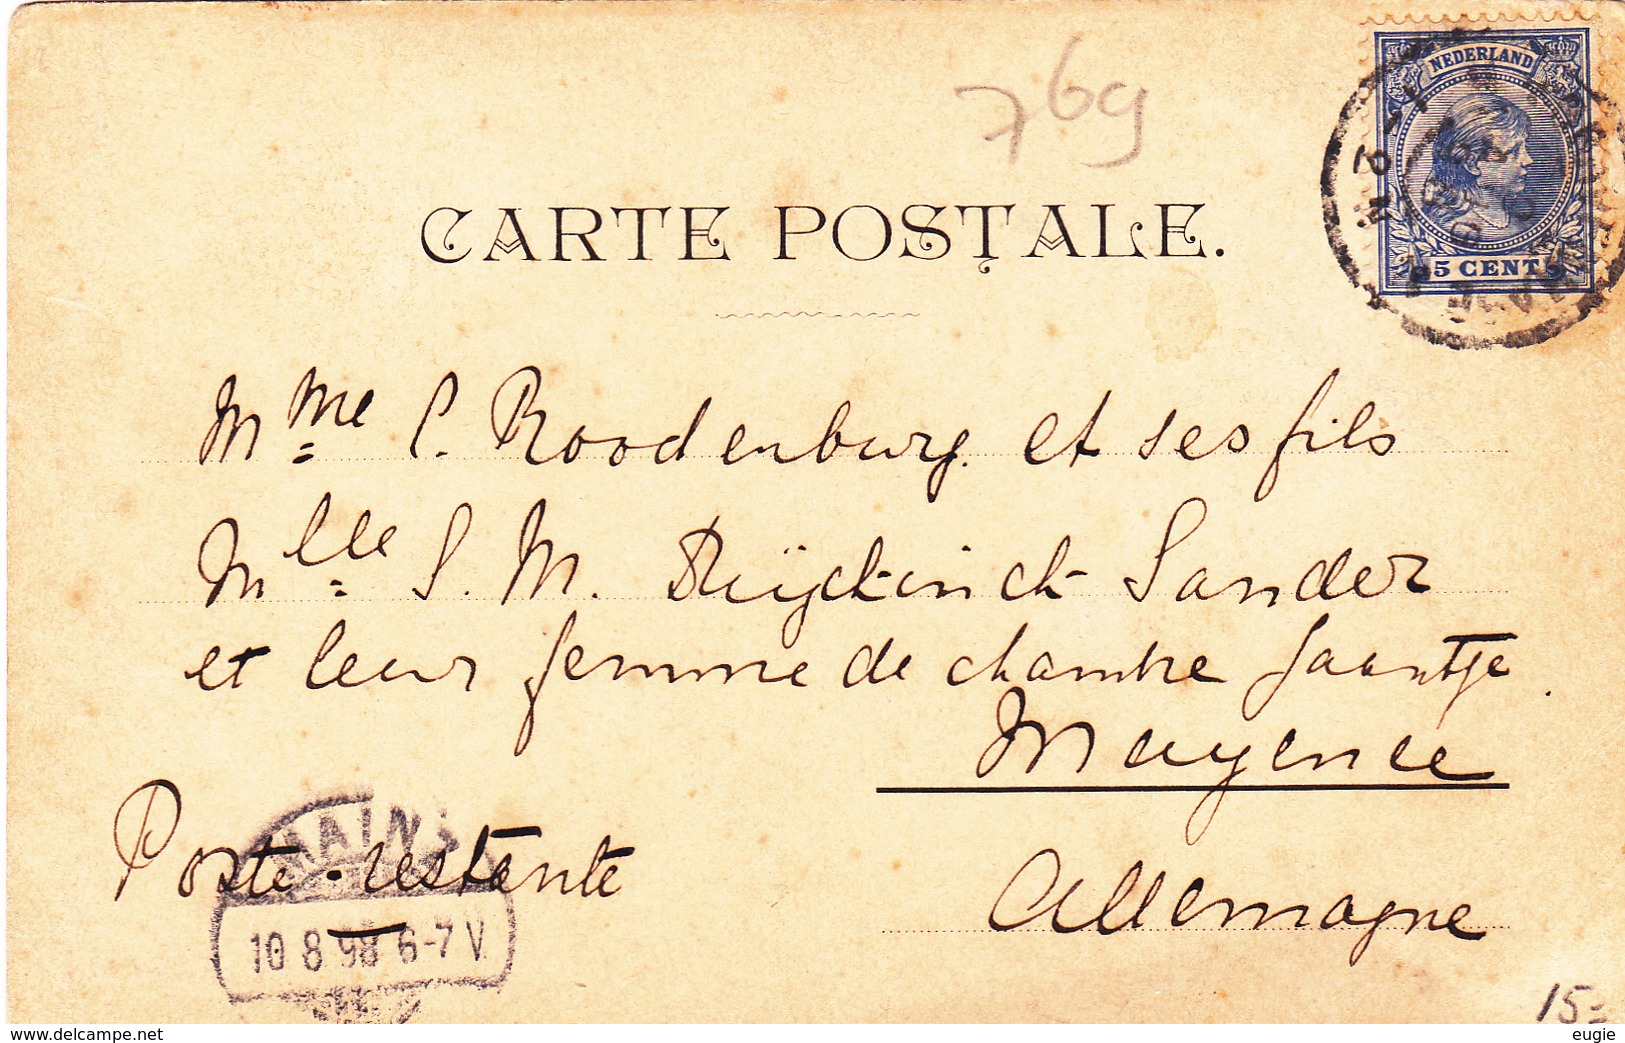 769
NEDERLAND
5 CENT
CARTE POSTALE.
Mme C. Roodenburg et ses fils
Mlle S. M. Ruÿckinck Sander
et leur femme de chambre Jaantje.
Mayence
MAINZ
Poste-restante
10 8 98 6-7 V
Allemagne
15=
www.delcampe.net
eugie